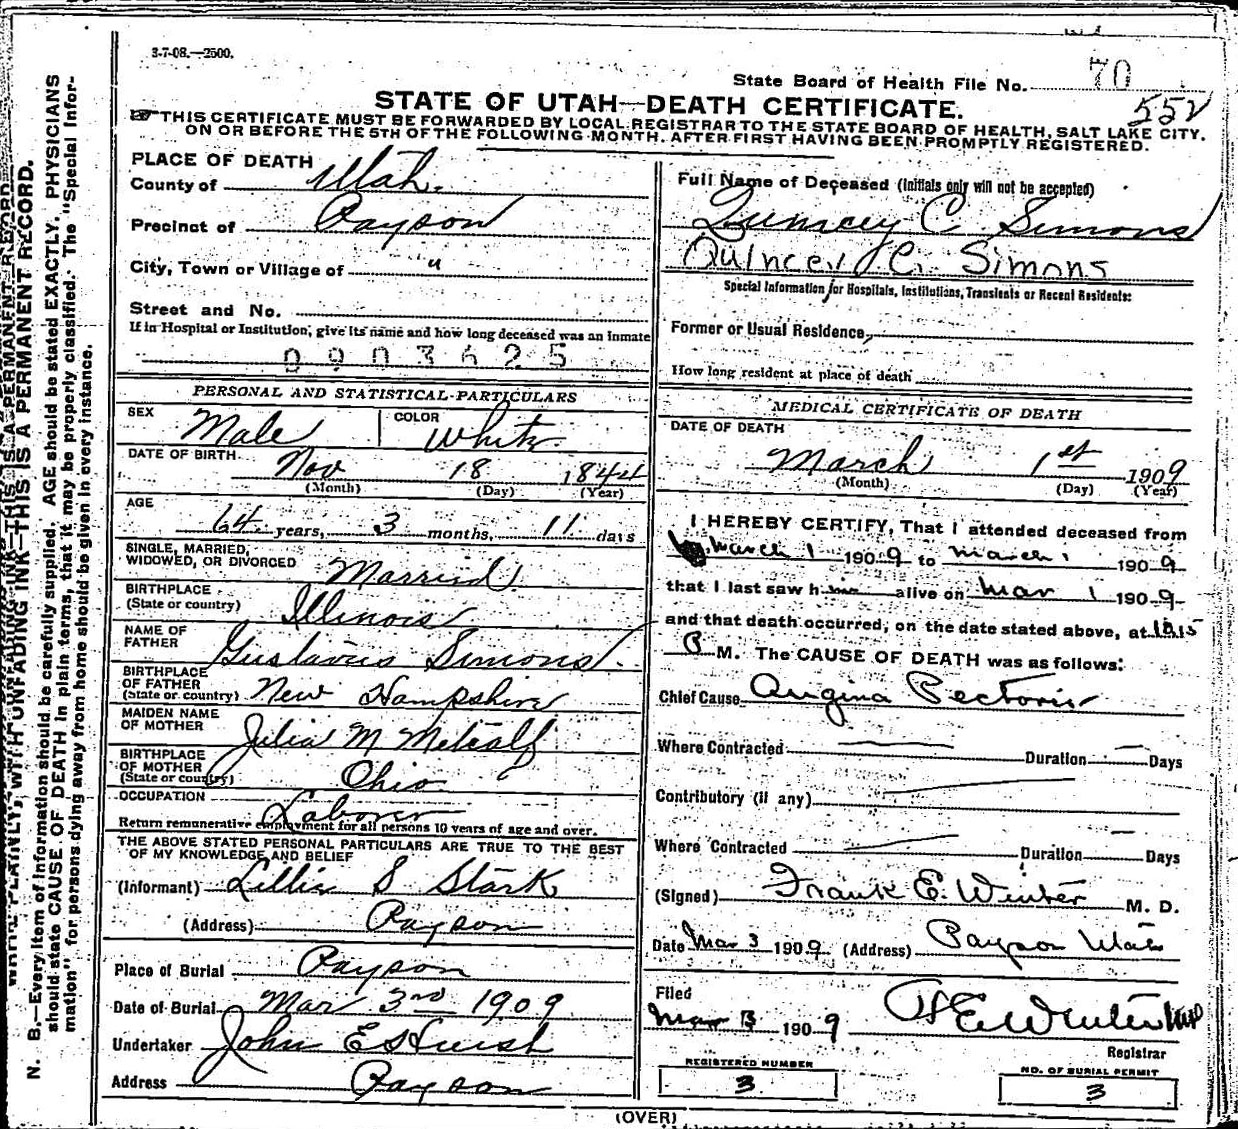 3-7-08.—2500.
State Board of Health File No. 70
552
STATE OF UTAH—DEATH CERTIFICATE.
THIS CERTIFICATE MUST BE FORWARDED BY LOCAL REGISTRAR TO THE STATE BOARD OF HEALTH, SALT LAKE CITY.
ON OR BEFORE THE 5TH OF THE FOLLOWING MONTH. AFTER FIRST HAVING BEEN PROMPTLY REGISTERED.
PLACE OF DEATH
County of Utah.
Precinct of Payson
City, Town or Village of "
Street and No.
If in Hospital or Institution, give its name and how long deceased was an inmate
0903625
PERSONAL AND STATISTICAL PARTICULARS
SEX Male COLOR White
DATE OF BIRTH Nov 18 1844
(Month) (Day) (Year)
AGE
64 years, 3 months, 11 days
SINGLE, MARRIED,
WIDOWED, OR DIVORCED Married
BIRTHPLACE
(State or country) Illinois
NAME OF
FATHER Gustavus Simons
BIRTHPLACE
OF FATHER
(State or country) New Hampshire
MAIDEN NAME
OF MOTHER Julia M Metcalf
BIRTHPLACE
OF MOTHER
(State or country) Ohio
OCCUPATION Laborer
Return remunerative employment for all persons 10 years of age and over.
THE ABOVE STATED PERSONAL PARTICULARS ARE TRUE TO THE BEST
OF MY KNOWLEDGE AND BELIEF
(Informant) Lillie S Stark
(Address) Payson
Place of Burial Payson
Date of Burial Mar 3rd 1909
Undertaker John E
Address Payson
Full Name of Deceased (Initials only will not be accepted)
Quincey C Simons
Quincey C. Simons
Special Information for Hospitals, Institutions, Transients or Recent Residents:
Former or Usual Residence,
How long resident at place of death
MEDICAL CERTIFICATE OF DEATH
DATE OF DEATH
March 1st 1909
(Month) (Day) (Year)
I HEREBY CERTIFY, That I attended deceased from
March 1 1909 to March 1 1909
that I last saw him alive on Mar 1 1909
and that death occurred, on the date stated above, at 10.15
P M. The CAUSE OF DEATH was as follows:
Chief Cause Angina Pectoris
Where Contracted — Duration — Days
Contributory (if any)
Where Contracted — Duration — Days
(Signed) Frank E. Winter M. D.
Date Mar 3 1909 (Address) Payson Utah
Filed
Mar 3 1909 F E Winter MD
Registrar
REGISTERED NUMBER
3
NO. OF BURIAL PERMIT
3
(OVER)
WRITE PLAINLY, WITH UNFADING INK—THIS IS A PERMANENT RECORD.
N. B.—Every item of information should be carefully supplied. AGE should be stated EXACTLY. PHYSICIANS
should state CAUSE OF DEATH in plain terms, that it may be properly classified. The "Special Infor-
mation" for persons dying away from home should be given in every instance.